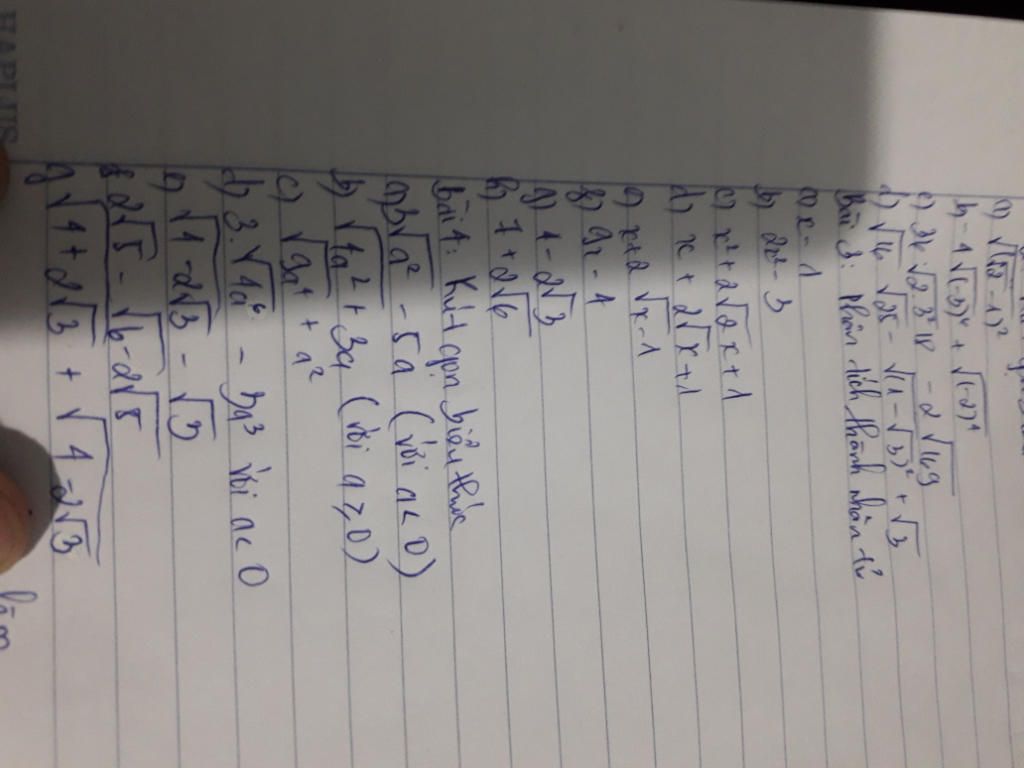 a) √(√2 - 1)²
b) -4√(-3)⁴ + √(-2)⁴
c) √2.3².18 - 2√169
d) √16 √25 - √(1-√3)² + √3
Bài 3: Phân tích thành nhân tử
a) x - 1
b) 2x² - 3
c) x² + 2√2 x + 1
d) x + 2√x + 1
e) x + 2√x-1
g) 9x - 4
g) 4 - 2√3
h) 7 + 2√6
Bài 4: Rút gọn biểu thức
a) √a² - 5a (với a < 0)
b) √4a² + 3a (với a ≥ 0)
c) √9a⁴ + a²
d) 3.√4a⁶ - 3a³ với a < 0
e) √4-2√3 - √3
f 2√5 - √6-2√5
g √4+2√3 + √4-2√3
HAPLUS